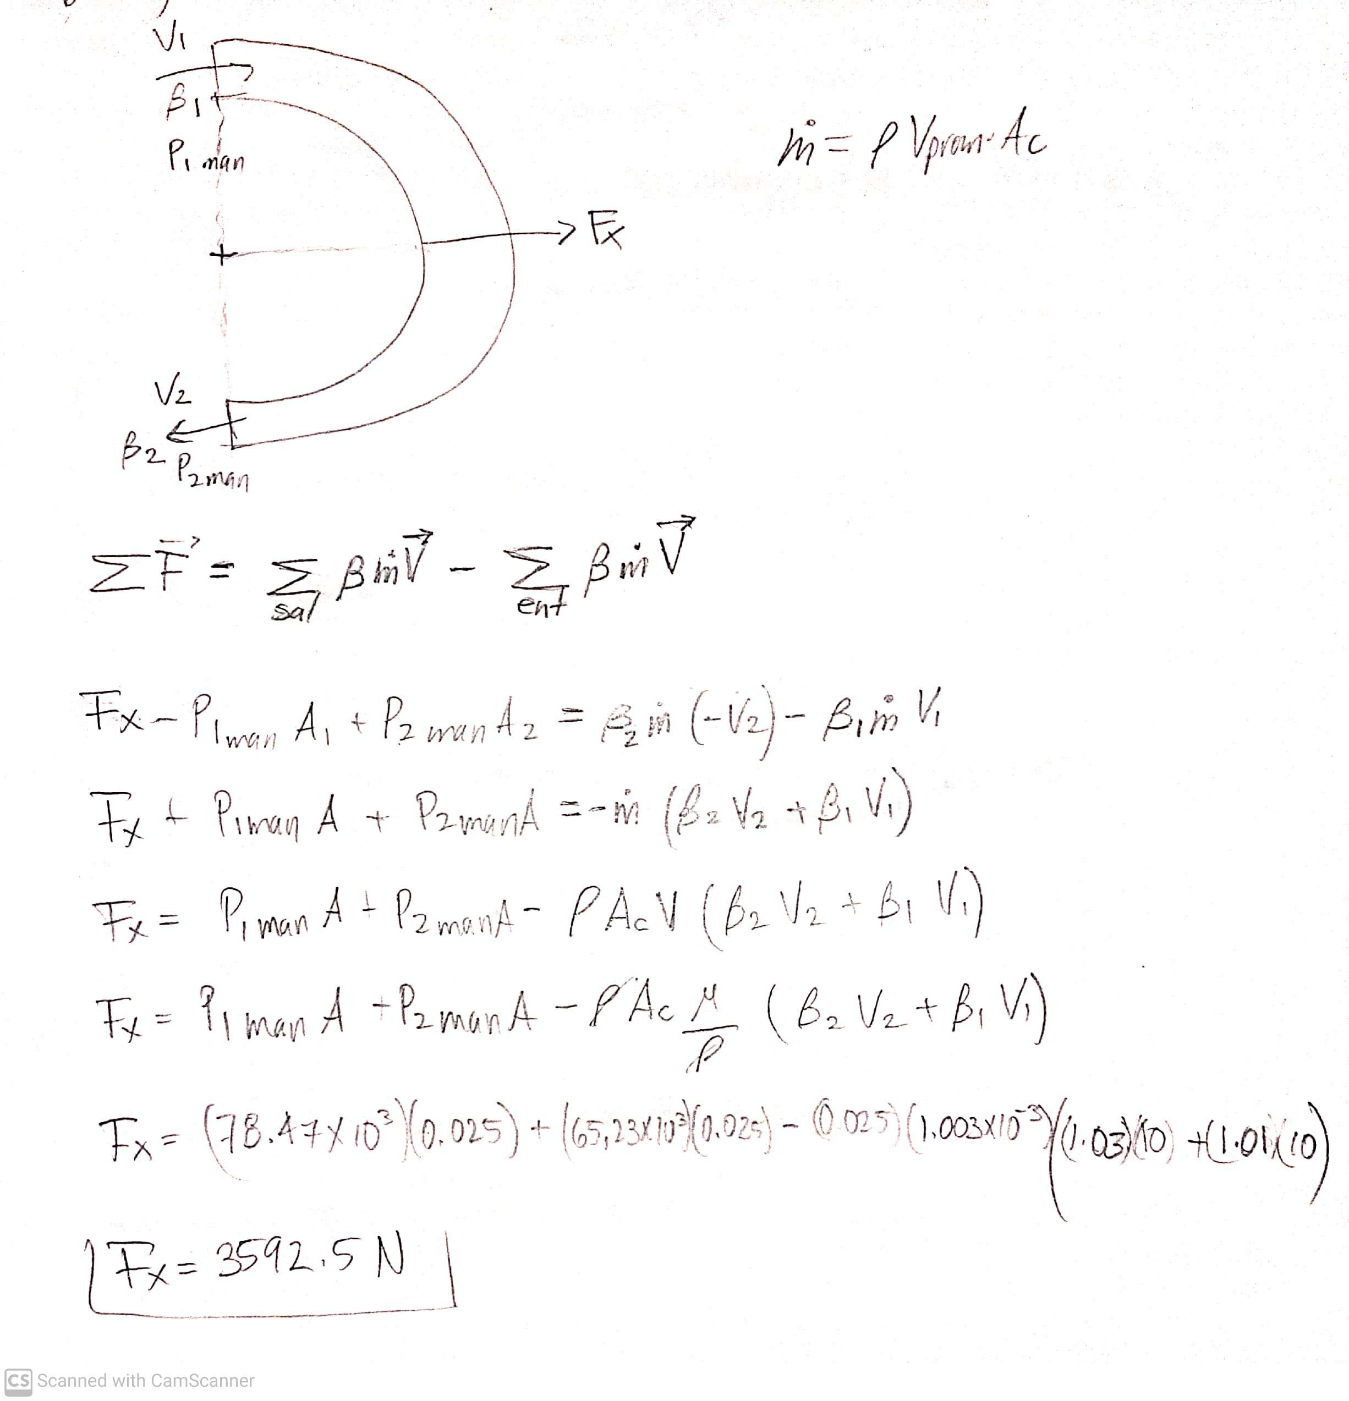 V1
β1
P1 man
ṁ = ρ Vprom·Ac
+
→ Fx
V2
β2
P2 man
ΣF⃗ = Σ sal βṁV⃗ - Σ ent βṁV⃗
Fx - P1 man A1 + P2 man A2 = β2 ṁ (-V2) - β1 ṁ V1
Fx + P1 man A + P2 man A = -ṁ (β2 V2 + β1 V1)
Fx = P1 man A + P2 man A - ρ Ac V (β2 V2 + β1 V1)
Fx = P1 man A + P2 man A - ρ Ac μ/ρ (β2 V2 + β1 V1)
Fx = (78.47x10³)(0.025) + (65,23x10³)(0.025) - (0.025)(1.003x10⁻³)((1.03)(10) + (1.01)(10)
Fx = 3592.5 N
CS Scanned with CamScanner